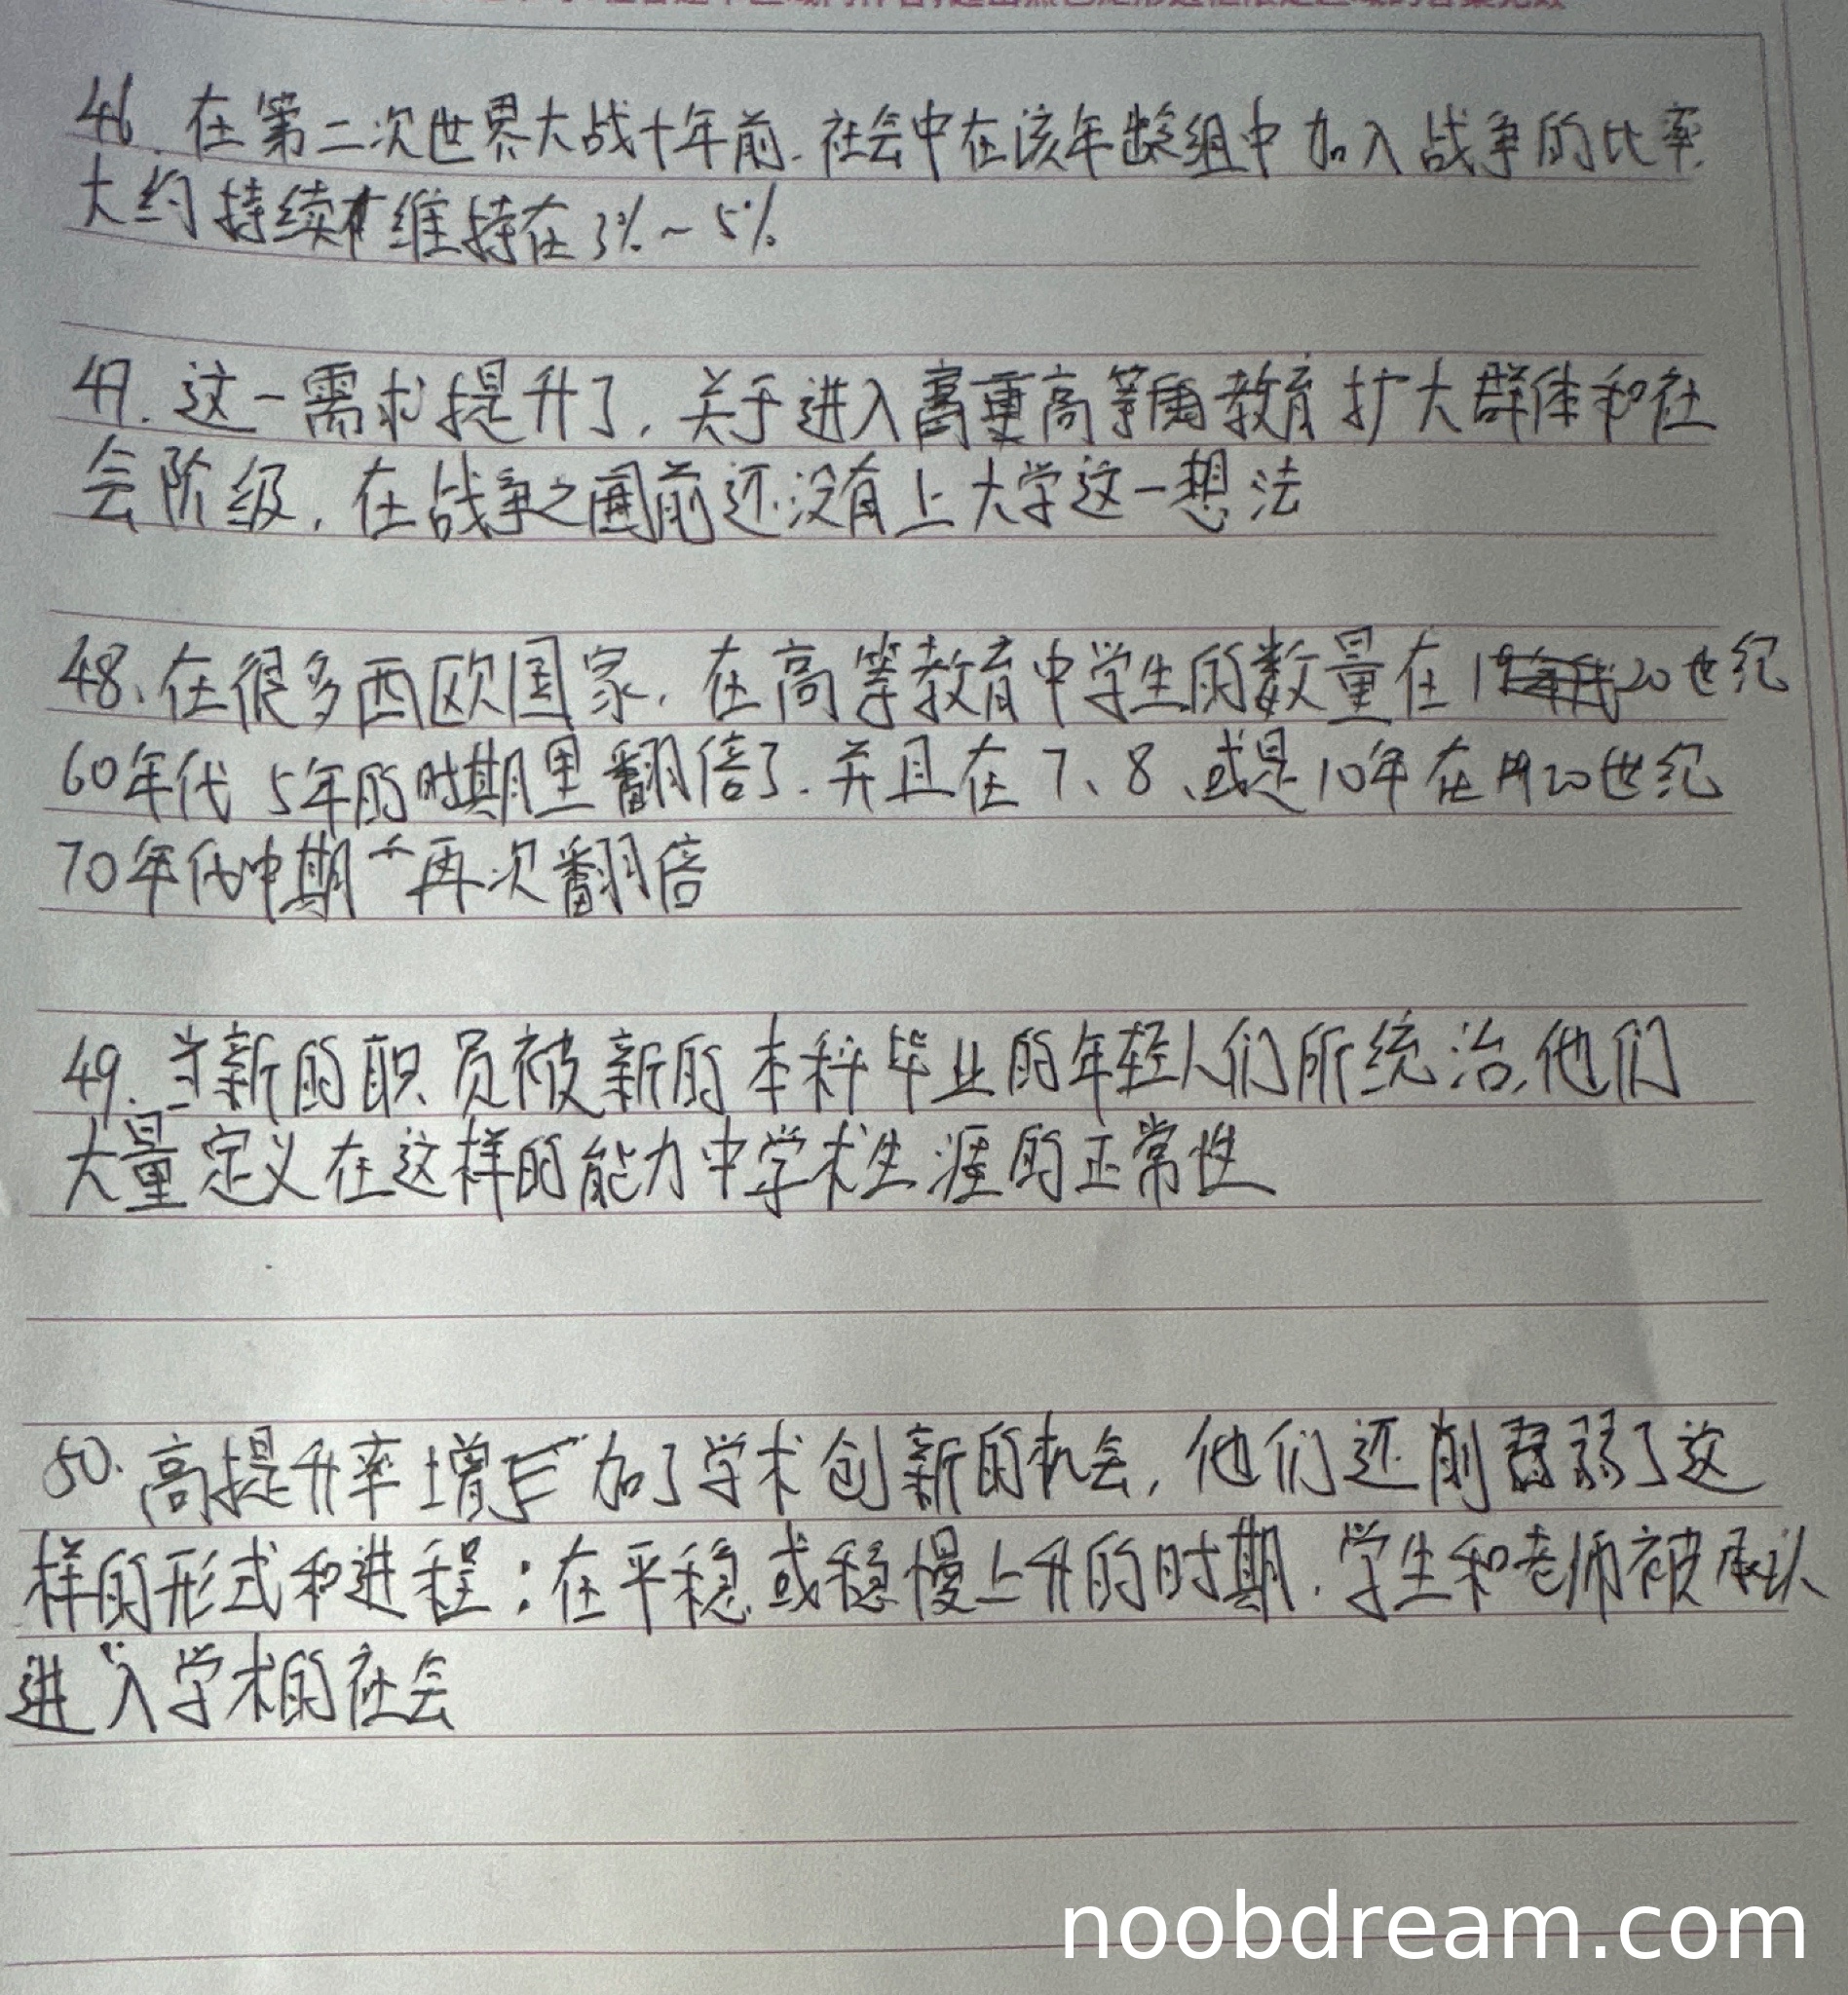 46. 在第二次世界大战十年前. 社会中在该年龄组中 加入战争的比率
大约持续维持在3%~5%
47. 这一需求提升了, 关于进入高等教育扩大群体和社
会阶级, 在战争之前还没有上大学这一想法
48、在很多西欧国家, 在高等教育中学生的数量在20世纪
60年代 5年的时期里翻倍了. 并且在 7、8、或是10年在20世纪
70年代中期 再次翻倍
49. 当新的职员被新的本科毕业的年轻人们所统治, 他们
大量定义在这样的能力中学术生涯的正常性
50. 高提升率增加了学术创新的机会, 他们还削弱了这
样的形式和进程: 在平稳或稳慢上升的时期. 学生和老师被承认
进入学术的社会
noobdream.com